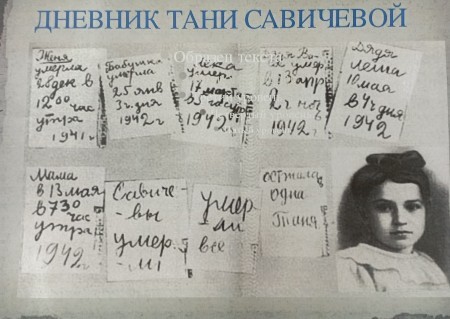 ДНЕВНИК ТАНИ САВИЧЕВОЙ
Женя
умерла
28 дек в
12 00 час
утра
1941 г
Бабушка
умерла
25 янв
3 ч дня
1942 г
Лека
умер
17 марта
в 5 час у
1942 г
Дядя Ва
умер
в 13 апр
2 ч ноч
1942 г
Дядя
Леша
10 мая
в 4 ч дня
1942
Мама
в 13 мая
в 7 30
час
утра
1942 г
Савиче
-вы
умер
-ли
умер-
ли
все
осталась
одна
Таня